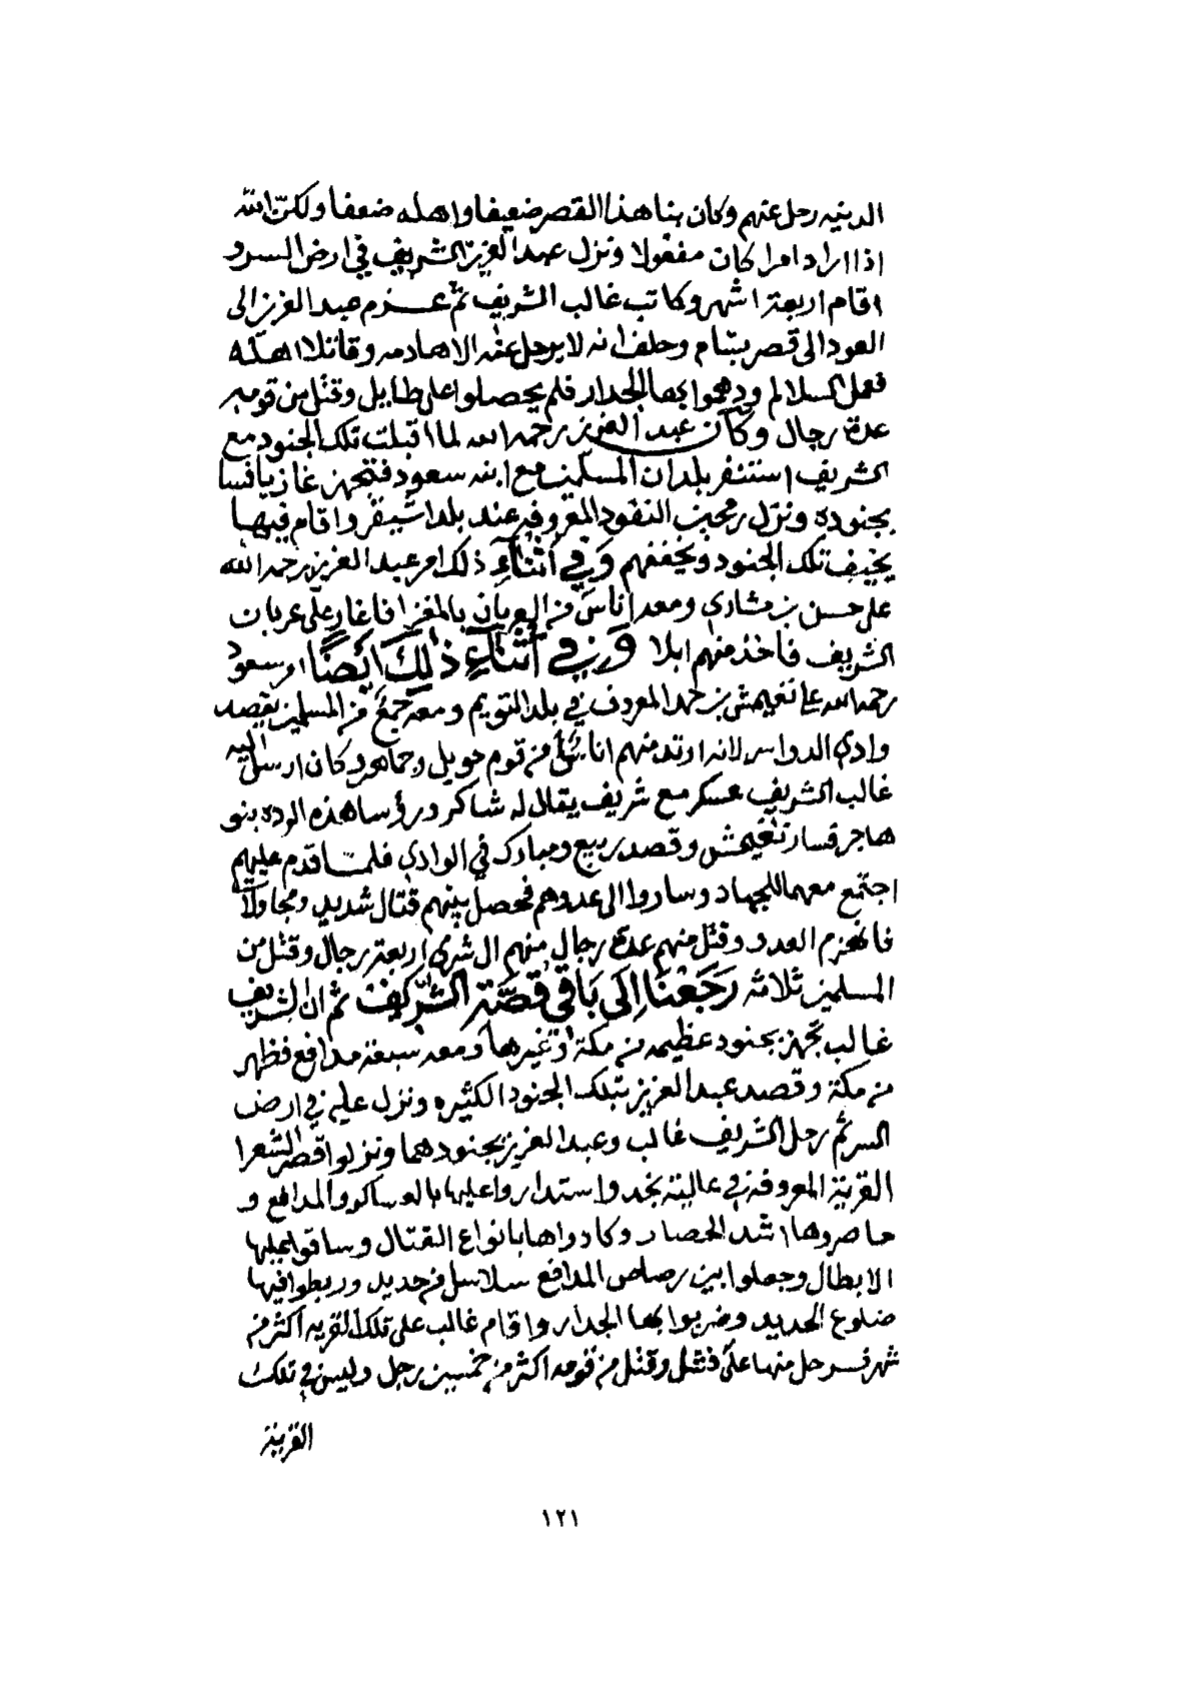 الدينيه رحل عنهم وكان بنا هذا القصر ضعيفا واهله ضعفا ولكن الله
اذا اراد امرا كان مفعولا ونزل عبد العزيز الشريف في ارض السر و
اقام اربعة اشهر وكاتب غالب الشريف ثم عزم عبد العزيز الى
العود الى قصر بسّام وحلف انه لا يرحل عنه الا هادمه وقاتلا اهله
فعمل السلالم ودهموا بها الجدار فلم يحصلوا على طايل وقتل من قومه
عدة رجال وكان عبد العزيز رحمه الله لما اقبلت تلك الجنود مع
الشريف استنفر بلدان المسلمين مع ابنه سعود فتجهز غازيا فسا
بجنوده ونزل رمحين النفود المعروفه عند بلد اشيقر واقام فيها
يخيف تلك الجنود ويخففهم وَفي أثنَاءِ ذلك امر عبد العزيز رحمه الله
على حسن بن مشاري ومعه اناس من العربان بالمغزا فاغار على عربان
الشريف فاخذ منهم ابلا وَفي أثنَاءِ ذلِكَ ايضًا امر سعود
رحمه الله على نغيمش بن حمد المعروف في بلد التويم ومعه جمع من المسلمين يقصد
وادي الدواسر لانه ارتد منهم اناس من قوم حويل وجماهر وكان ارسل اليه
غالب الشريف عسكر مع شريف يقال له شاكر ورؤسا هذه الرده بنو
هاجر فسار نغيمش وقصد ربيع ومبارك في الوادي فلما قدم عليهم
اجتمع معهما للجهاد وساروا الى عدوهم فحصل بينهم قتال شديد ومجاولات
فانهزم العدو وقتل منهم عدة رجال منهم ال شري اربعة رجال وقتل من
المسلمين ثلاثه رَجَعْنَا إلى بَاقي قصّة الشريف ثم ان الشريف
غالب تجهز بجنود عظيمه من مكة وغيرها ومعه سبعة مدافع فظهر
من مكة وقصد عبد العزيز بتلك الجنود الكثيره ونزل عليه في ارض
السر ثم رحل الشريف غالب وعبد العزيز بجنودهما ونزلوا قصر الشعرا
القرية المعروفة في عالية نجد واستداروا عليها بالعساكر والمدافع و
حاصروها اشد الحصار وكادوا ها بانواع القتال وساقوا عليها
الابطال وجعلوا بين رصاص المدافع سلاسل من حديد وربطوا فيها
ضلوع الحديد وضربوا بها الجدار واقام غالب على تلك القريه اكثر من
شهر فرحل منها على فشل وقتل من قومه اكثر من خمسين رجل وليس في تلك
القرية
١٢١